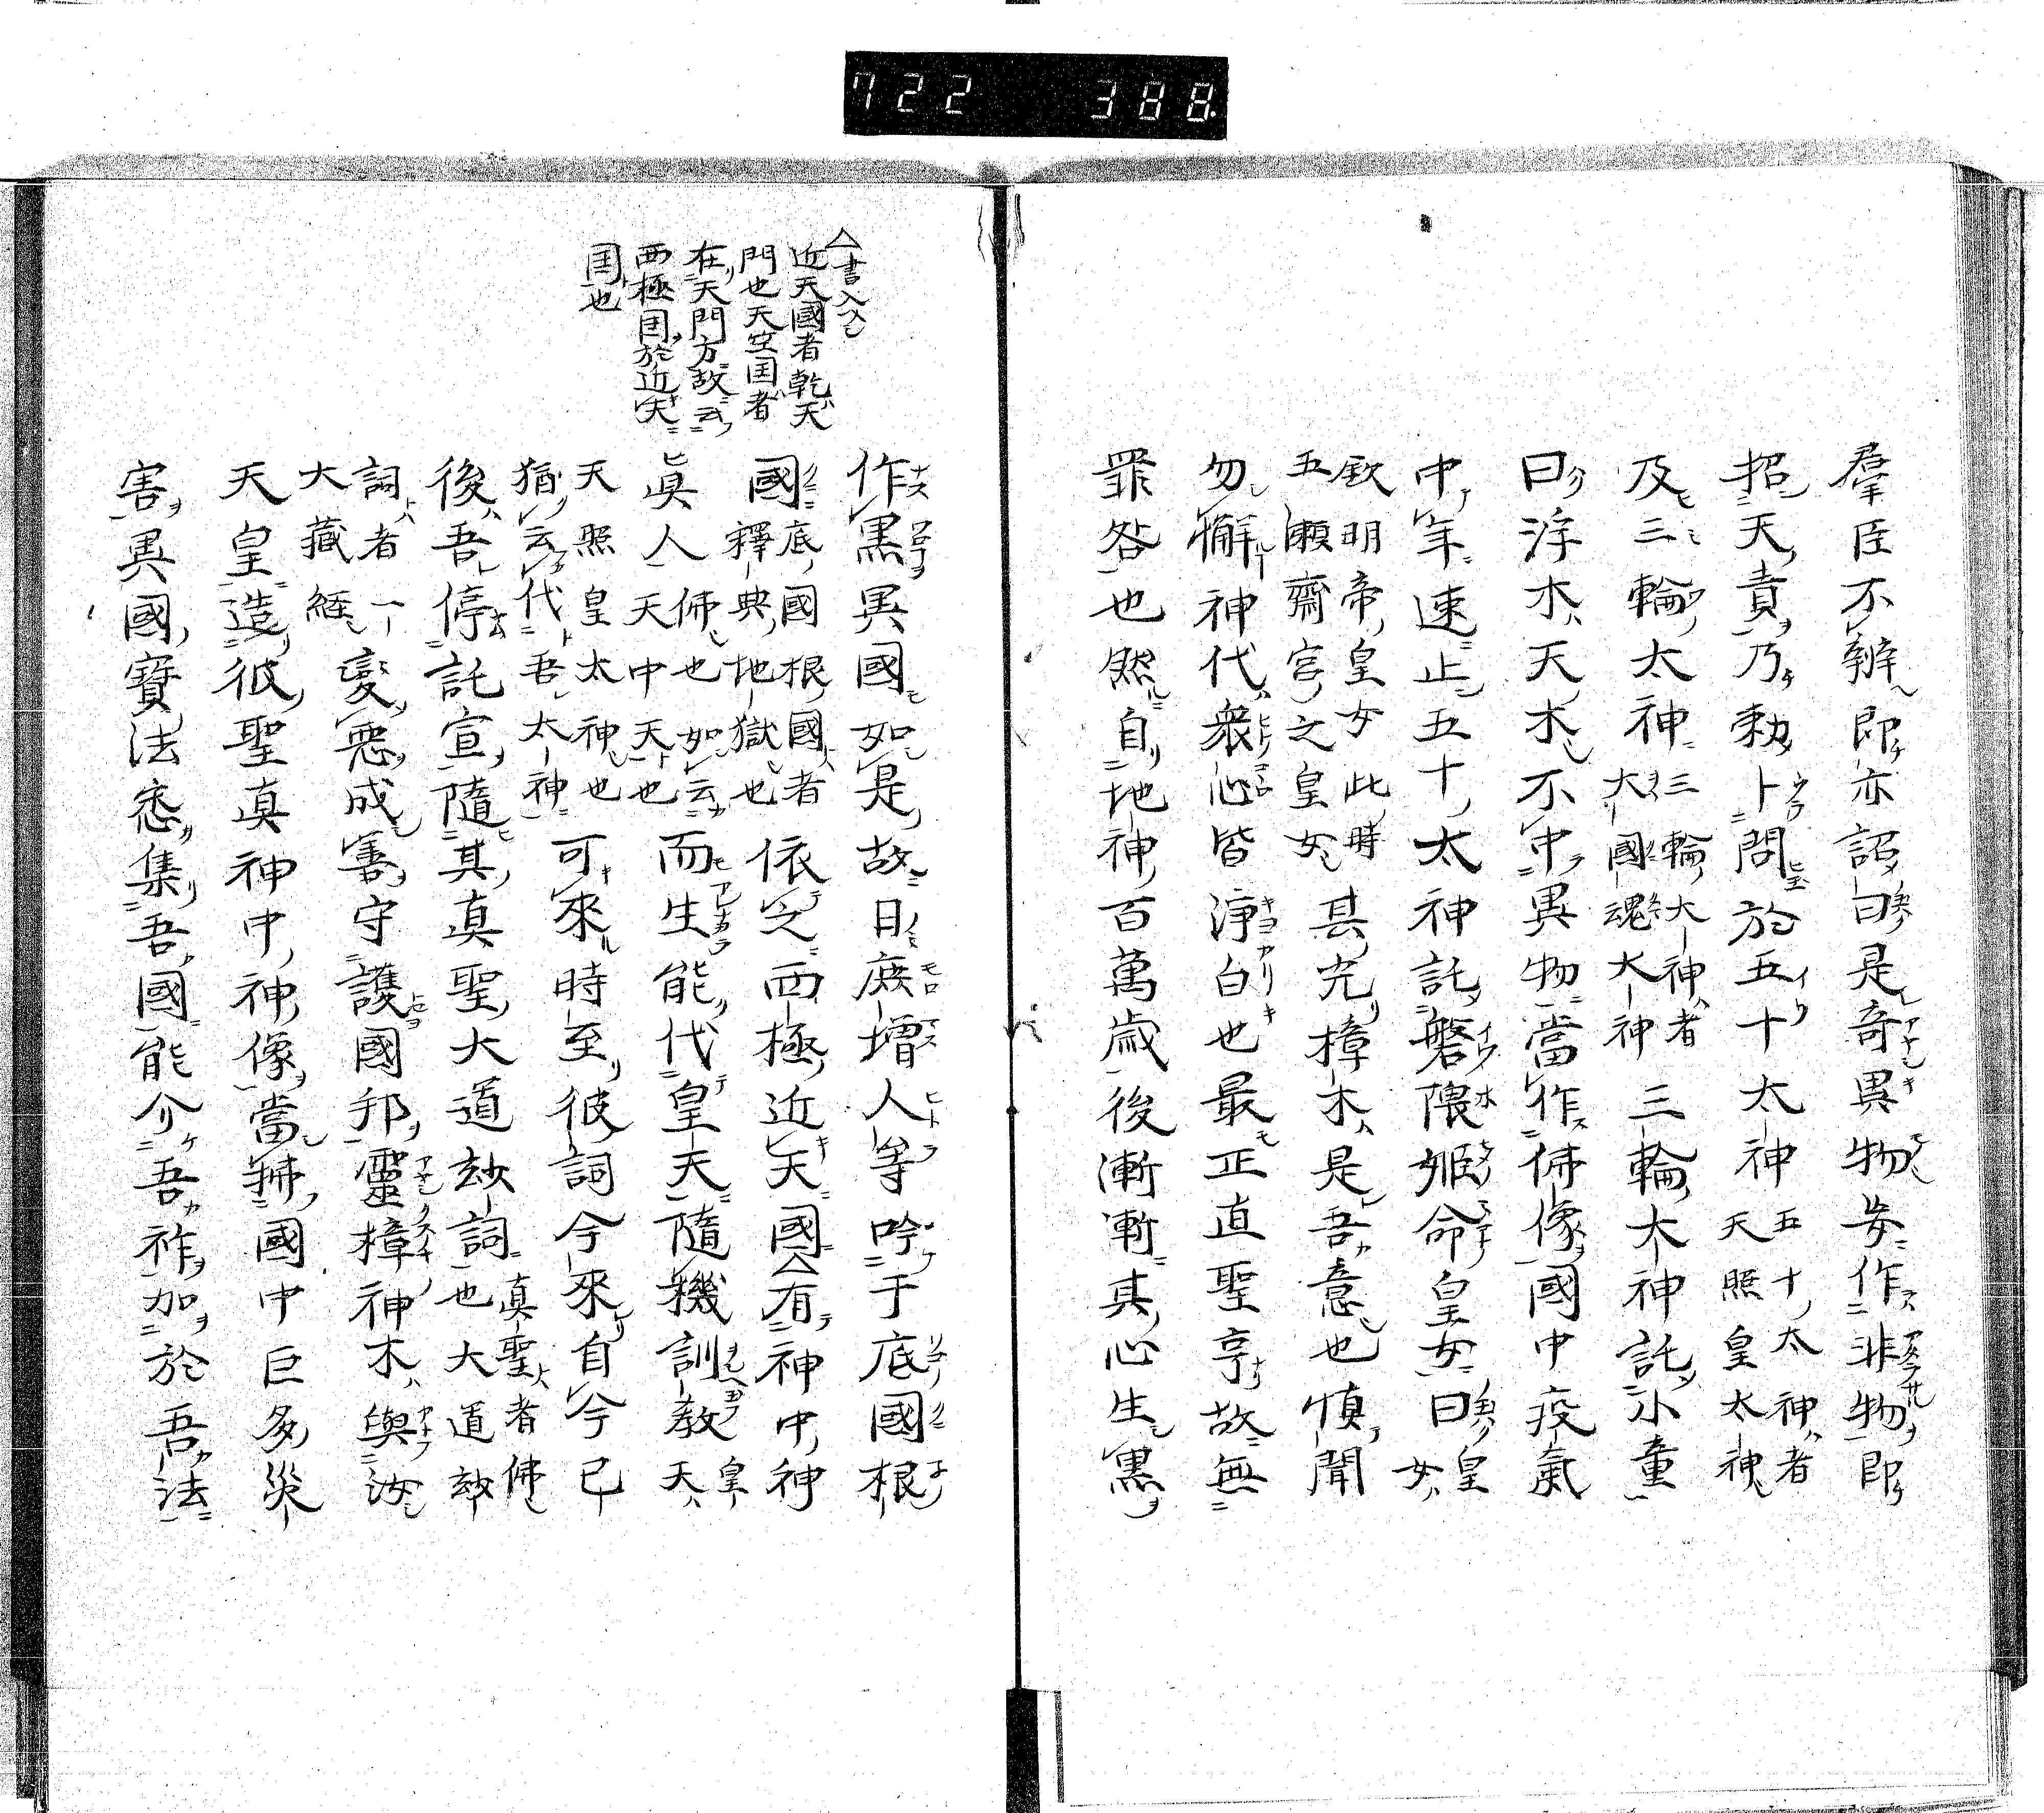 722 388
羣臣不辨即亦詔曰是奇異物安作非物即
招天責乃勅卜問於五十太神五十太神者天照皇太神
及三輪太神三輪大神者大國魂大神三輪大神託小童
曰浮木天木不中異物當作佛像國中疫氣
中年速止五十太神託磐隈姬命皇女曰皇女
欽明帝皇女此時五瀬齋宮之皇女其光樟木是吾意也慎聞
勿懈神代衆心皆淨白也最正直聖亨故無
罪咎也然自地神百萬歳後漸漸其心生黒
△書入
近天國者乾天
門也天竺国者
在天門方故云
西極国於近天
国也
作黒異國如是故日庶增人等吟于底國根
國底國根國者釋典地獄也依之西極近天國△有神中神
眞人佛也如云天中天也而生能代皇天隨機訓教皇天
天照皇太神也猶云代吾太神可來時至彼詞今來自今已
後吾停託宣隨其真聖大道玅詞也真聖者佛大道玅
詞者一大藏經變惡成善守護國邦靈樟神木與汝
天皇造彼聖眞神中神像當拂國中巨多災
害異國寶法悉集吾國能介吾祚加於吾法